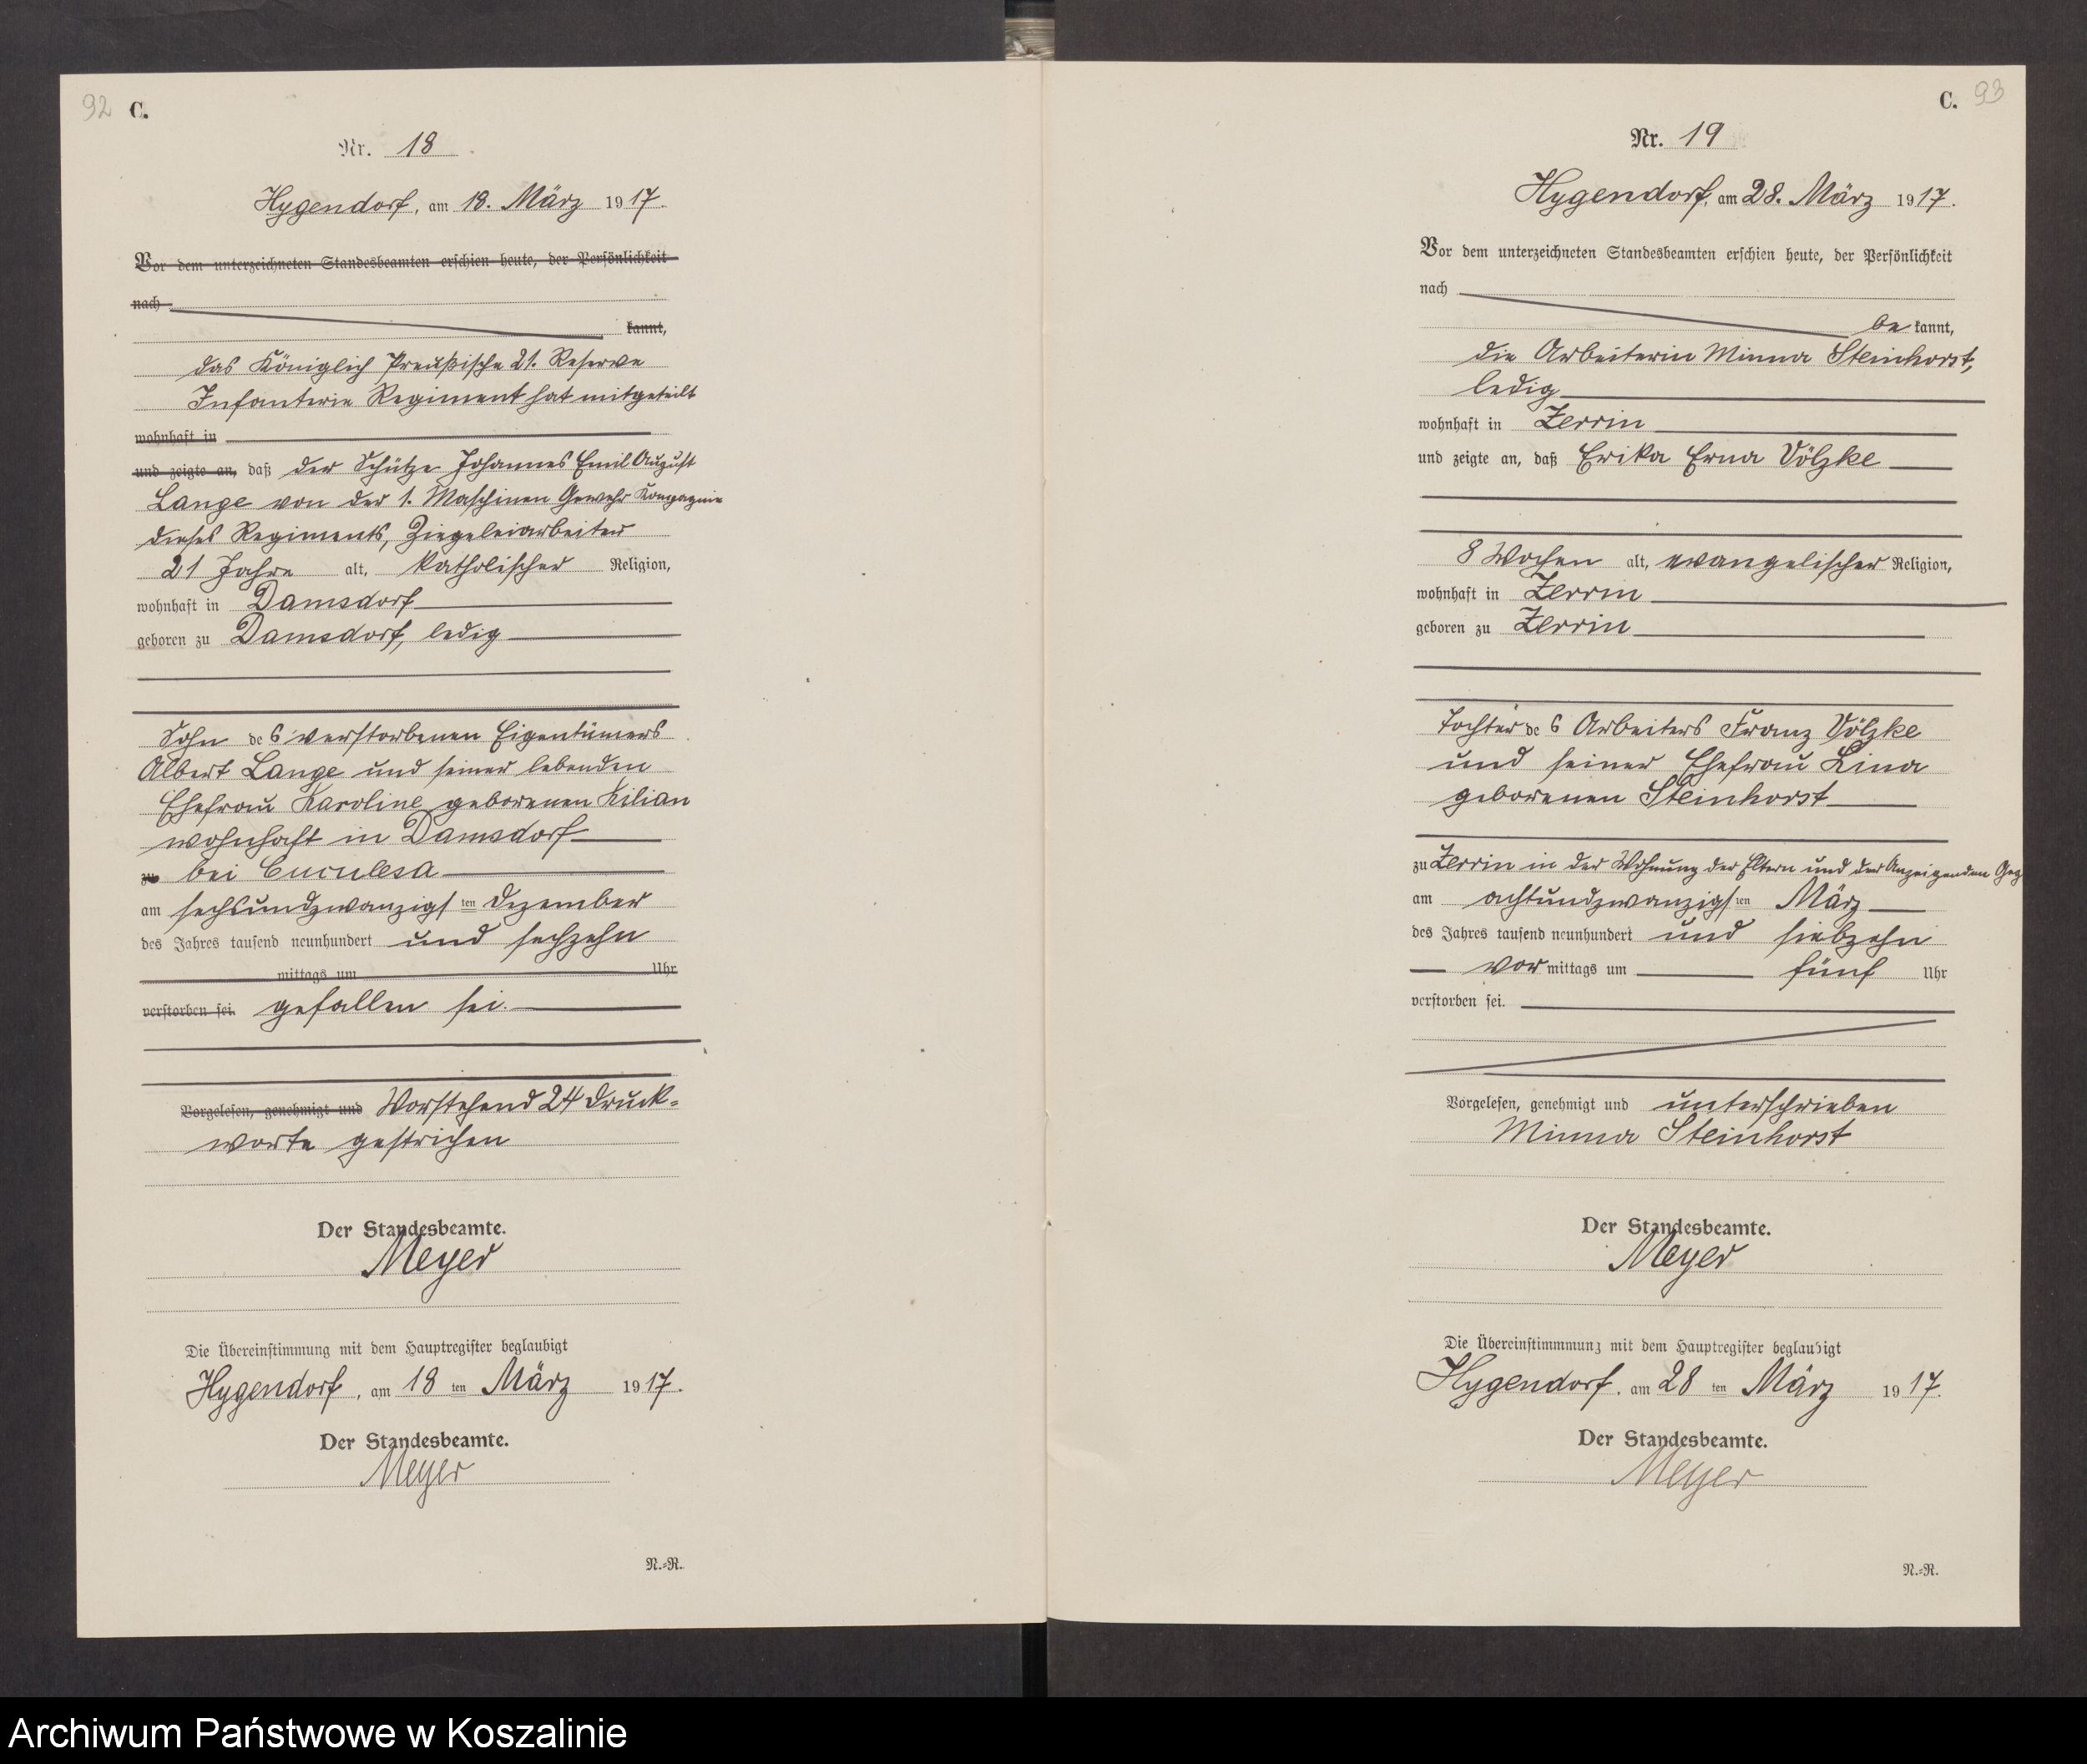 92 C.
Nr. 18
Hygendorf, am 18. März 1917.
Vor dem unterzeichneten Standesbeamten erschien heute, der Persönlichkeit
nach
kannt,
das Königlich Preußische 21. Reserve
Infanterie Regiment hat mitgeteilt
wohnhaft in
und zeigte an, daß der Schütze Johannes Emil August
Lange von der 1. Maschinen Gewehr Kompagnie
dieses Regiments, Ziegeleiarbeiter
21 Jahre alt, katholischer Religion,
wohnhaft in Damsdorf
geboren zu Damsdorf, ledig
Sohn des verstorbenen Eigentümers
Albert Lange und seiner lebenden
Ehefrau Karoline geborenen Kilian
wohnhaft in Damsdorf
zu bei Cuculesa
am sechsundzwanzigsten Dezember
des Jahres tausend neunhundert und sechzehn
mittags um Uhr
verstorben sei. gefallen sei.
Vorgelesen, genehmigt und Vorstehend 24 Druck-
worte gestrichen
Der Standesbeamte.
Meyer
Die Übereinstimmung mit dem Hauptregister beglaubigt
Hygendorf, am 18 ten März 1917.
Der Standesbeamte.
Meyer
N.-R.
C. 93
Nr. 19
Hygendorf, am 28. März 1917.
Vor dem unterzeichneten Standesbeamten erschien heute, der Persönlichkeit
nach
be kannt,
die Arbeiterin Minna Steinhorst,
ledig
wohnhaft in Zerrin
und zeigte an, daß Erika Erna Völzke
8 Wochen alt, evangelischer Religion,
wohnhaft in Zerrin
geboren zu Zerrin
Tochter des Arbeiters Franz Völzke
und seiner Ehefrau Lina
geborenen Steinhorst
zu Zerrin in der Wohnung der Eltern und der Anzeigenden Geg
am achtundzwanzigsten März
des Jahres tausend neunhundert und siebzehn
vor mittags um fünf Uhr
verstorben sei.
Vorgelesen, genehmigt und unterschrieben
Minna Steinhorst
Der Standesbeamte.
Meyer
Die Übereinstimmmung mit dem Hauptregister beglaubigt
Hygendorf, am 28 ten März 1917.
Der Standesbeamte.
Meyer
N.-R.
Archiwum Państwowe w Koszalinie